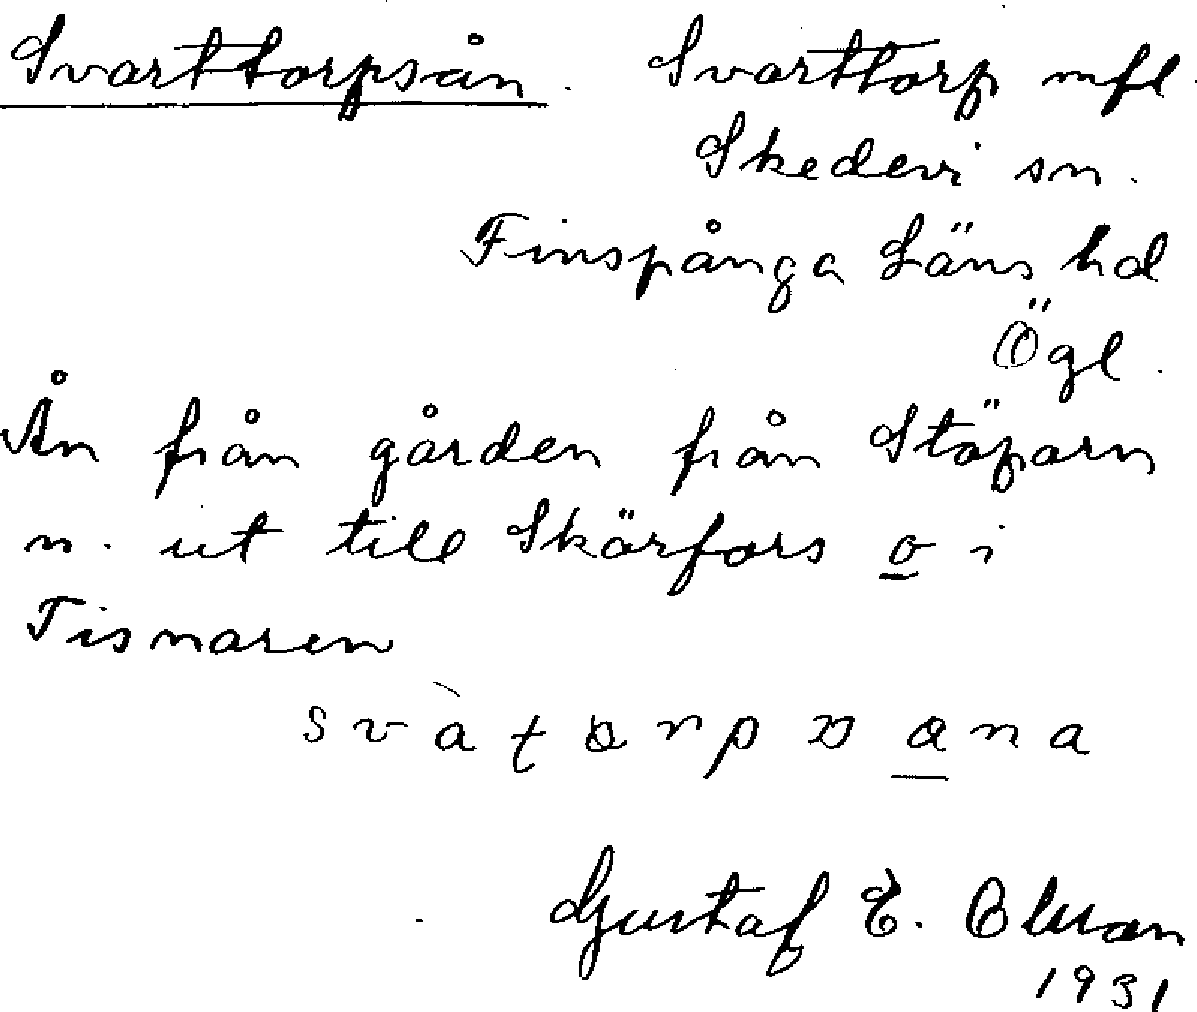 Svarttorpsån. Svarttorp mfl.
Skedevi sn.
Finspånga Läns hd
Ögl.
Ån från gården från Stöparn
n. ut till Skärfors o i
Tisnaren
Gustaf E. Olson
1931